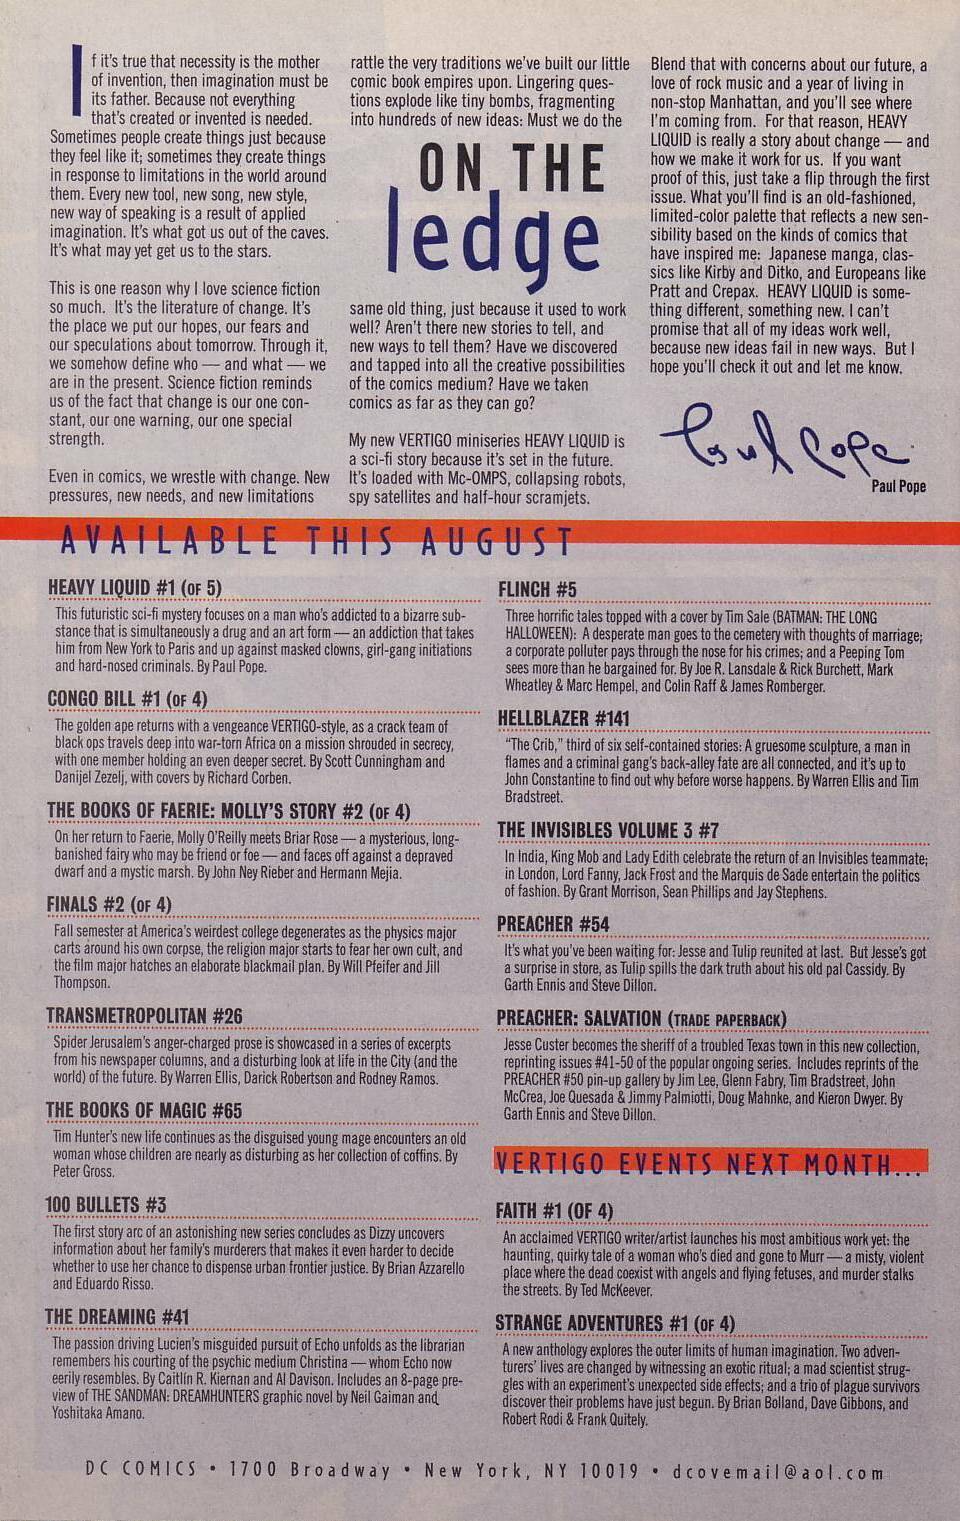 If it's true that necessity is the mother
of invention, then imagination must be
its father. Because not everything
that's created or invented is needed.
Sometimes people create things just because
they feel like it; sometimes they create things
in response to limitations in the world around
them. Every new tool, new song, new style,
new way of speaking is a result of applied
imagination. It's what got us out of the caves.
It's what may yet get us to the stars.
This is one reason why I love science fiction
so much. It's the literature of change. It's
the place we put our hopes, our fears and
our speculations about tomorrow. Through it,
we somehow define who — and what — we
are in the present. Science fiction reminds
us of the fact that change is our one con-
stant, our one warning, our one special
strength.
Even in comics, we wrestle with change. New
pressures, new needs, and new limitations
rattle the very traditions we've built our little
comic book empires upon. Lingering ques-
tions explode like tiny bombs, fragmenting
into hundreds of new ideas: Must we do the
ON THE
ledge
same old thing, just because it used to work
well? Aren't there new stories to tell, and
new ways to tell them? Have we discovered
and tapped into all the creative possibilities
of the comics medium? Have we taken
comics as far as they can go?
My new VERTIGO miniseries HEAVY LIQUID is
a sci-fi story because it's set in the future.
It's loaded with Mc-OMPS, collapsing robots,
spy satellites and half-hour scramjets.
Blend that with concerns about our future, a
love of rock music and a year of living in
non-stop Manhattan, and you'll see where
I'm coming from. For that reason, HEAVY
LIQUID is really a story about change — and
how we make it work for us. If you want
proof of this, just take a flip through the first
issue. What you'll find is an old-fashioned,
limited-color palette that reflects a new sen-
sibility based on the kinds of comics that
have inspired me: Japanese manga, clas-
sics like Kirby and Ditko, and Europeans like
Pratt and Crepax. HEAVY LIQUID is some-
thing different, something new. I can't
promise that all of my ideas work well,
because new ideas fail in new ways. But I
hope you'll check it out and let me know.
Paul Pope
Paul Pope
AVAILABLE THIS AUGUST
HEAVY LIQUID #1 (OF 5)
This futuristic sci-fi mystery focuses on a man who's addicted to a bizarre sub-
stance that is simultaneously a drug and an art form — an addiction that takes
him from New York to Paris and up against masked clowns, girl-gang initiations
and hard-nosed criminals. By Paul Pope.
CONGO BILL #1 (OF 4)
The golden ape returns with a vengeance VERTIGO-style, as a crack team of
black ops travels deep into war-torn Africa on a mission shrouded in secrecy,
with one member holding an even deeper secret. By Scott Cunningham and
Danijel Zezelj, with covers by Richard Corben.
THE BOOKS OF FAERIE: MOLLY'S STORY #2 (OF 4)
On her return to Faerie, Molly O'Reilly meets Briar Rose — a mysterious, long-
banished fairy who may be friend or foe — and faces off against a depraved
dwarf and a mystic marsh. By John Ney Rieber and Hermann Mejia.
FINALS #2 (OF 4)
Fall semester at America's weirdest college degenerates as the physics major
carts around his own corpse, the religion major starts to fear her own cult, and
the film major hatches an elaborate blackmail plan. By Will Pfeifer and Jill
Thompson.
TRANSMETROPOLITAN #26
Spider Jerusalem's anger-charged prose is showcased in a series of excerpts
from his newspaper columns, and a disturbing look at life in the City (and the
world) of the future. By Warren Ellis, Darick Robertson and Rodney Ramos.
THE BOOKS OF MAGIC #65
Tim Hunter's new life continues as the disguised young mage encounters an old
woman whose children are nearly as disturbing as her collection of coffins. By
Peter Gross.
100 BULLETS #3
The first story arc of an astonishing new series concludes as Dizzy uncovers
information about her family's murderers that makes it even harder to decide
whether to use her chance to dispense urban frontier justice. By Brian Azzarello
and Eduardo Risso.
THE DREAMING #41
The passion driving Lucien's misguided pursuit of Echo unfolds as the librarian
remembers his courting of the psychic medium Christina — whom Echo now
eerily resembles. By Caitlín R. Kiernan and Al Davison. Includes an 8-page pre-
view of THE SANDMAN: DREAMHUNTERS graphic novel by Neil Gaiman and
Yoshitaka Amano.
FLINCH #5
Three horrific tales topped with a cover by Tim Sale (BATMAN: THE LONG
HALLOWEEN): A desperate man goes to the cemetery with thoughts of marriage;
a corporate polluter pays through the nose for his crimes; and a Peeping Tom
sees more than he bargained for. By Joe R. Lansdale & Rick Burchett, Mark
Wheatley & Marc Hempel, and Colin Raff & James Romberger.
HELLBLAZER #141
"The Crib," third of six self-contained stories: A gruesome sculpture, a man in
flames and a criminal gang's back-alley fate are all connected, and it's up to
John Constantine to find out why before worse happens. By Warren Ellis and Tim
Bradstreet.
THE INVISIBLES VOLUME 3 #7
In India, King Mob and Lady Edith celebrate the return of an Invisibles teammate;
in London, Lord Fanny, Jack Frost and the Marquis de Sade entertain the politics
of fashion. By Grant Morrison, Sean Phillips and Jay Stephens.
PREACHER #54
It's what you've been waiting for: Jesse and Tulip reunited at last. But Jesse's got
a surprise in store, as Tulip spills the dark truth about his old pal Cassidy. By
Garth Ennis and Steve Dillon.
PREACHER: SALVATION (TRADE PAPERBACK)
Jesse Custer becomes the sheriff of a troubled Texas town in this new collection,
reprinting issues #41-50 of the popular ongoing series. Includes reprints of the
PREACHER #50 pin-up gallery by Jim Lee, Glenn Fabry, Tim Bradstreet, John
McCrea, Joe Quesada & Jimmy Palmiotti, Doug Mahnke, and Kieron Dwyer. By
Garth Ennis and Steve Dillon.
VERTIGO EVENTS NEXT MONTH...
FAITH #1 (OF 4)
An acclaimed VERTIGO writer/artist launches his most ambitious work yet: the
haunting, quirky tale of a woman who's died and gone to Murr — a misty, violent
place where the dead coexist with angels and flying fetuses, and murder stalks
the streets. By Ted McKeever.
STRANGE ADVENTURES #1 (OF 4)
A new anthology explores the outer limits of human imagination. Two adven-
turers' lives are changed by witnessing an exotic ritual; a mad scientist strug-
gles with an experiment's unexpected side effects; and a trio of plague survivors
discover their problems have just begun. By Brian Bolland, Dave Gibbons, and
Robert Rodi & Frank Quitely.
DC COMICS • 1700 Broadway • New York, NY 10019 • dcovemail@aol.com